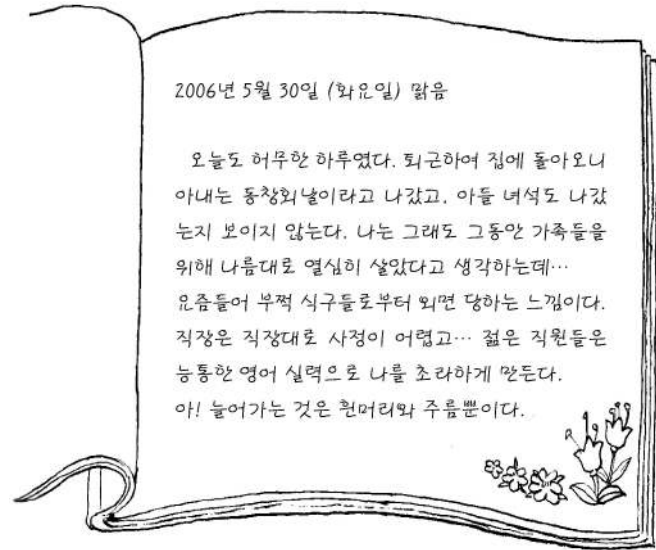 2006년 5월 30일 (화요일) 맑음
오늘도 허무한 하루였다. 퇴근하여 집에 돌아오니
아내는 동창회날이라고 나갔고, 아들 녀석도 나갔
는지 보이지 않는다. 나는 그래도 그동안 가족들을
위해 나름대로 열심히 살았다고 생각하는데…
요즘들어 부쩍 식구들로부터 외면 당하는 느낌이다.
직장은 직장대로 사정이 어렵고… 젊은 직원들은
능통한 영어 실력으로 나를 초라하게 만든다.
아! 늘어가는 것은 흰머리와 주름뿐이다.